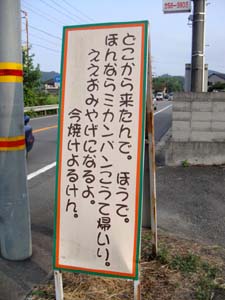 どこから来たんで。ほうで。
ほんならミカンパンこうて帰いり。
ええおみやげになるよ。
今焼けよるけん。